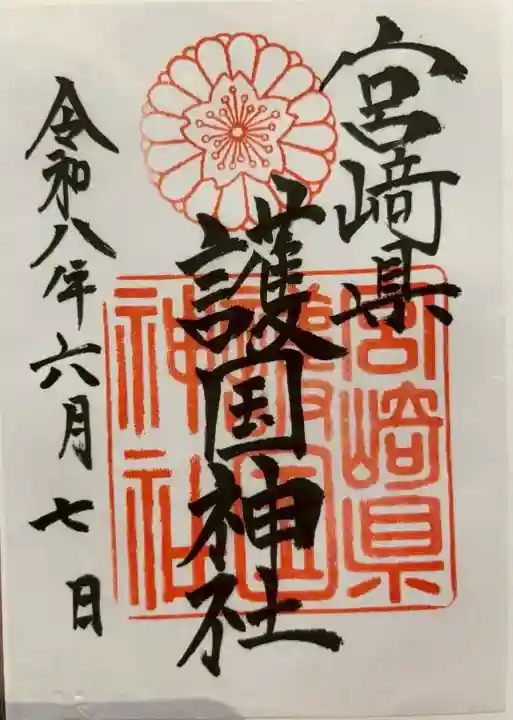 宮﨑県
護国神社
令和八年六月七日
宮崎県
護国
神社